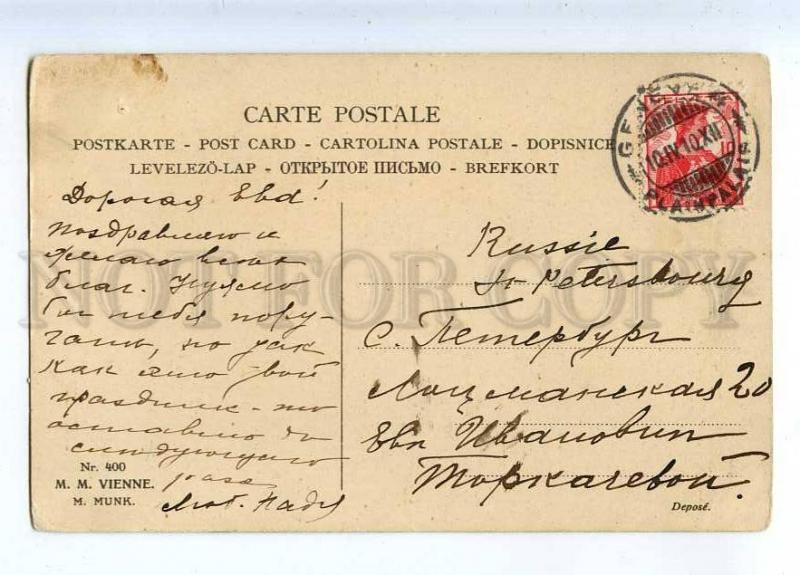 CARTE POSTALE
POSTKARTE - POST CARD - CARTOLINA POSTALE - DOPISNICE
LEVELEZŐ-LAP - ОТКРЫТОЕ ПИСЬМО - BREFKORT
GENÈVE
10.IV.10.XII
PLAINPALAIS
Дорогая Ева!
поздравляю и
желаю всяк
благ. Нужно
бы тебя пору-
гать, но так
как это твой
праздник - то
оставлю до
следующаго
раза.
Люб. Надя
Russie
St Petersbourg
С. Петербург
Лоцманская 20
Евп Ивановић
Торкачевой.
Nr. 400
M. M. VIENNE.
M. MUNK.
Deposé.
NOT FOR COPY